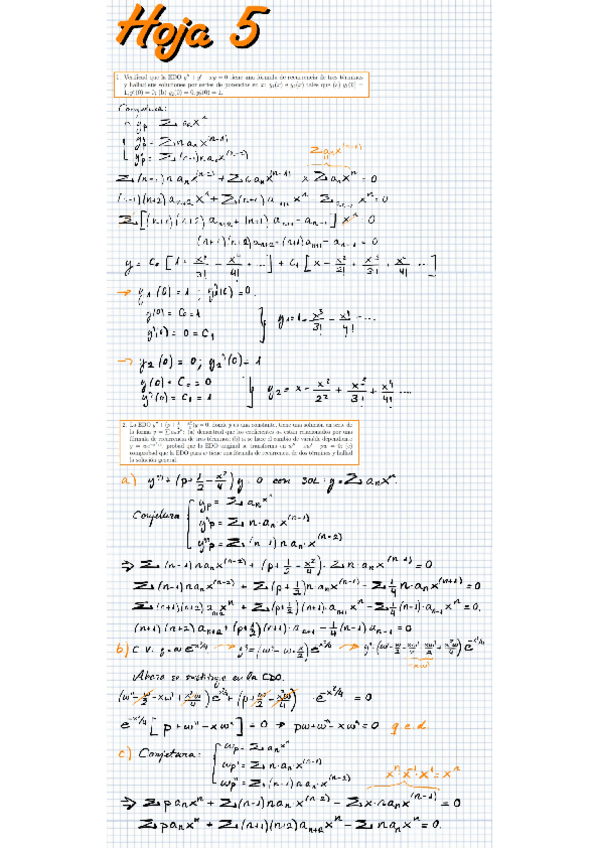 Hoja 5
1. Verificad que la EDO y'' + y' − xy = 0 tiene una fórmula de recurrencia de tres términos
y hallad sus soluciones por series de potencias en x: y₁(x) e y₂(x) tales que (a) y₁(0) =
1, y₁'(0) = 0; (b) y₂(0) = 0, y₂'(0) = 1.
Conjetura:
yp = Σ aₙxⁿ
y'p = Σ n aₙ x^(n-1)
y''p = Σ (n-1) n aₙ x^(n-2)
Σ (n-1) n aₙ x^(n-2) + Σ n aₙ x^(n-1) x Σ aₙ xⁿ = 0
(n+1)(n+2) aₙ₊₂ xⁿ + Σ (n+1) aₙ₊₁ xⁿ Σ aₙ₋₁ xⁿ = 0
Σ [(n+1)(n+2) aₙ₊₂ + (n+1) aₙ₊₁ − aₙ₋₁] xⁿ = 0
(n+1)(n+2) aₙ₊₂ + (n+1) aₙ₊₁ − aₙ₋₁ = 0
y = C₀ [1 + x³/3! − x⁴/4! + ...] + C₁ [x − x²/2! + x³/3! + x⁴/4! ...]
→ y₁(0) = 1 ; y₁'(0) = 0.
y(0) = C₀ = 1
y'(0) = 0 = C₁
y₁ = 1 + x³/3! − x⁴/4! ....
→ y₂(0) = 0; y₂'(0) = 1
y(0) = C₀ = 0
y'(0) = C₁ = 1
y₂ = x − x²/2! + x³/3! + x⁴/4! ....
2. La EDO y'' + (p + 1/2 − x²/4)y = 0, donde p es una constante, tiene una solución en serie de
la forma y = Σ aₙxⁿ: (a) demostrad que los coeficientes aₙ están relacionados por una
fórmula de recurrencia de tres términos; (b) si se hace el cambio de variable dependiente
probad que la EDO original se transforma en (c)
comprobad que la EDO para w tiene una fórmula de recurrencia de dos términos y hallad
la solución general.
a) y'' + (p + 1/2 − x²/4) y = 0 con sol: y = Σ aₙxⁿ.
Conjetura
yp = Σ aₙxⁿ
y'p = Σ n·aₙ·x^(n-1)
y''p = Σ (n-1) n aₙ x^(n-2)
⇒ Σ (n-1) n aₙ x^(n-2) + (p + 1/2 − x²/4) · Σ n·aₙ x^(n-1) = 0
Σ (n-1) n aₙ x^(n-2) + Σ (p + 1/2) n aₙ x^(n-1) − Σ 1/4 n·aₙ x^(n+1) = 0
Σ (n+1)(n+2) aₙ₊₂ xⁿ + Σ (p + 1/2)(n+1) aₙ₊₁ xⁿ − Σ 1/4 (n-1)·aₙ₋₁ xⁿ = 0.
(n+1)(n+2) aₙ₊₂ + (p + 1/2)(n+1)·aₙ₊₁ − 1/4 (n-1) aₙ₋₁ = 0
b) C.V. y = w e^(-x²/4)
Ahora se sustituye en la EDO.
e^(-x²/4) [p + w'' − xw'] = 0 → pw + w'' − xw' = 0 q.e.d.
c) Conjetura:
wp = Σ aₙxⁿ
wp' = Σ n·aₙ x^(n-1)
wp'' = Σ (n-1) n aₙ x^(n-2)
xⁿ·x⁻¹·x¹ = xⁿ
⇒ Σ p aₙ xⁿ + Σ (n-1) n aₙ x^(n-2) − Σ x·n aₙ x^(n-1) = 0
Σ p aₙ xⁿ + Σ (n+1)(n+2) aₙ₊₂ xⁿ − Σ n aₙ xⁿ = 0.